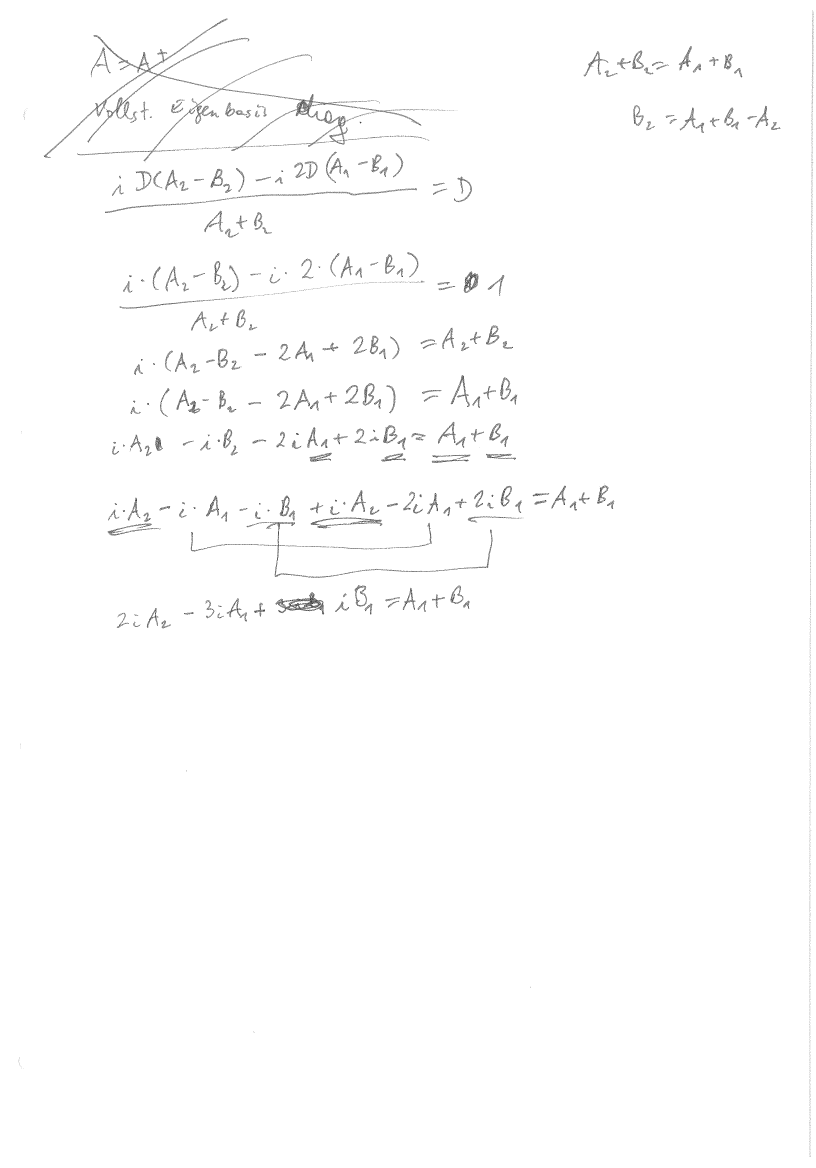 A = A⁺
Vollst. Eigenbasis diag.
A₂+B₂ = A₁+B₁
B₂ = A₁+B₁-A₂
(i D(A₂-B₂) - i 2D(A₁-B₁)) / (A₂+B₂) = D
(i·(A₂-B₂) - i·2·(A₁-B₁)) / (A₂+B₂) = 1
i·(A₂-B₂ - 2A₁ + 2B₁) = A₂+B₂
i·(A₂-B₂ - 2A₁+2B₁) = A₁+B₁
i·A₂ - i·B₂ - 2iA₁ + 2iB₁ = A₁+B₁
i·A₂ - i·A₁ - i·B₁ + i·A₂ - 2iA₁ + 2iB₁ = A₁+B₁
2iA₂ - 3iA₁ + iB₁ = A₁+B₁